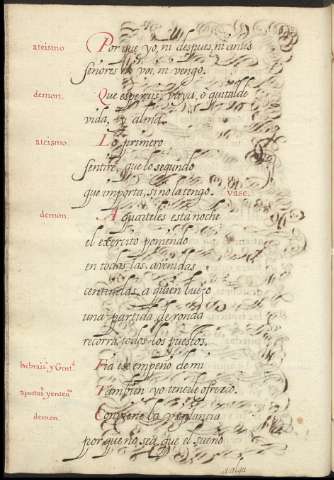 ateismo Por que yo, ni despues, ni antes
señores ni vn, ni vengo.
demon. Que esperais, vaya, o quitalde
vida, y alma.
ateismo Lo primero
sentire, que lo segundo
que importa, si no la tengo. vase.
demon. A quarteles esta noche
el exercito poniendo
en todas las avenidas
centinelas, a quien luego
una partida de ronda
recorra todos los puestos.
hebrais. y Gent. Fia ese empeño de mi
apostas. y Tambien yo te le ofrezco.
demon. Conviene la vigilancia
porque no sea que el sueño